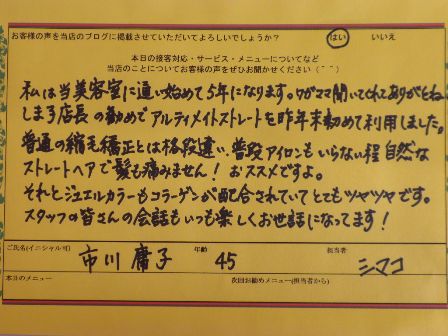 お客様の声を当店のブログに掲載させていただいてよろしいでしょうか? はい いいえ
本日の接客対応・サービス・メニューについてなど
当店のことについてお客様の声をぜひお聞かせください(^ ^)
私は当美容室に通い始めて5年になります。ワガママ聞いてくれてありがとね
しま子店長の勧めでアルティメイトストレートを昨年末初めて利用しました。
普通の縮毛矯正とは格段違い、普段アイロンもいらない程 自然な
ストレートヘアで髪も痛みません! おススメですよ。
それとジュエルカラーもコラーゲンが配合されていてとてもツヤツヤです。
スタッフの皆さんの会話もいつも楽しくお世話になってます!
ご氏名(イニシャル可) 市川 庸子 年齢 45 担当者 シマコ
本日のメニュー 次回お勧めメニュー(担当者から)